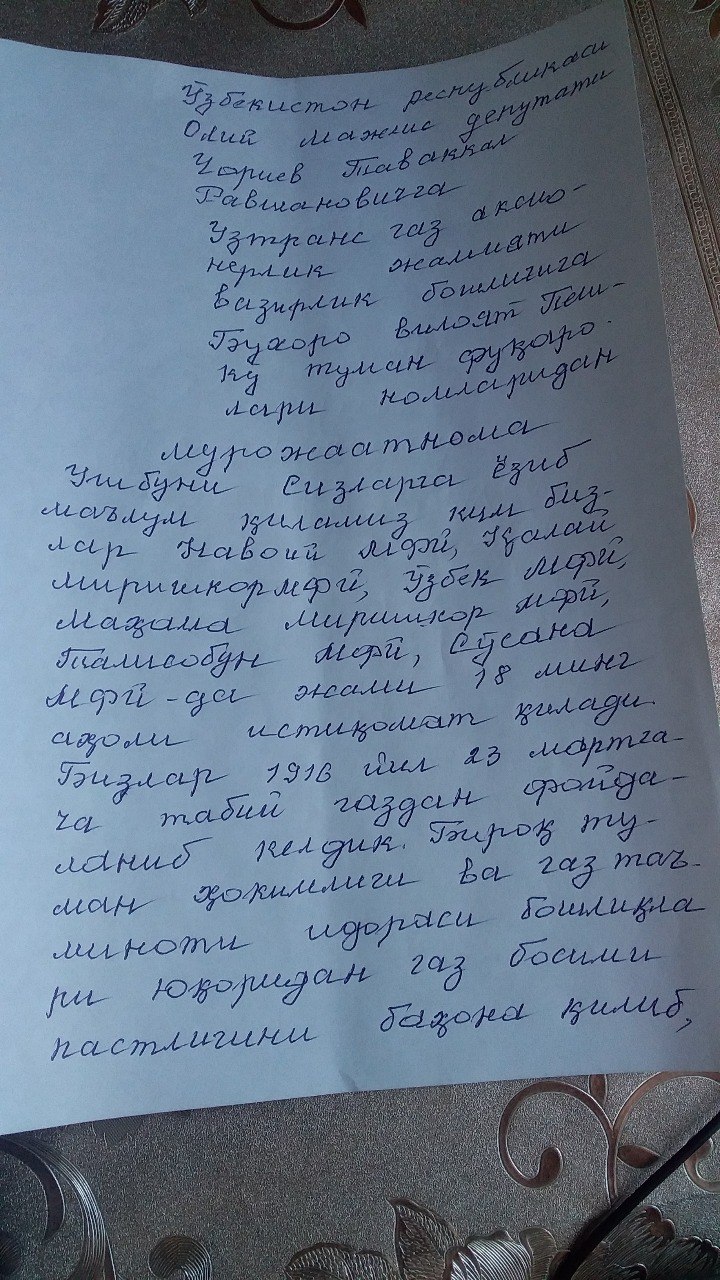 Ўзбекистон республикаси
Олий мажлис депутати
Чориев Таваккал
Равшановичга
Узтранс газ аксио-
нерлик жамияти
вазирлик бошлиғига
Бухоро вилоят Пеш-
кў туман фуқаро-
лари номларидан
мурожаатнома
Ушбуни Сизларга ёзиб
маълум қиламиз ким биз-
лар Навоий МФЙ, Қалай
миришкор МФЙ, Ўзбек МФЙ,
Маҳама миришкор МФЙ,
Талисобун МФЙ, Сўсана
МФЙ-да жами 18 минг
аҳоли истиқомат қилади.
Бизлар 1916 йил 23 мартга-
ча табий газдан фойда-
ланиб келдик. Бироқ ту-
ман ҳокимлиги ва газ таъ-
миноти идораси бошлиқла
ри юқоридан газ босими
пастлигини баҳона қилиб,